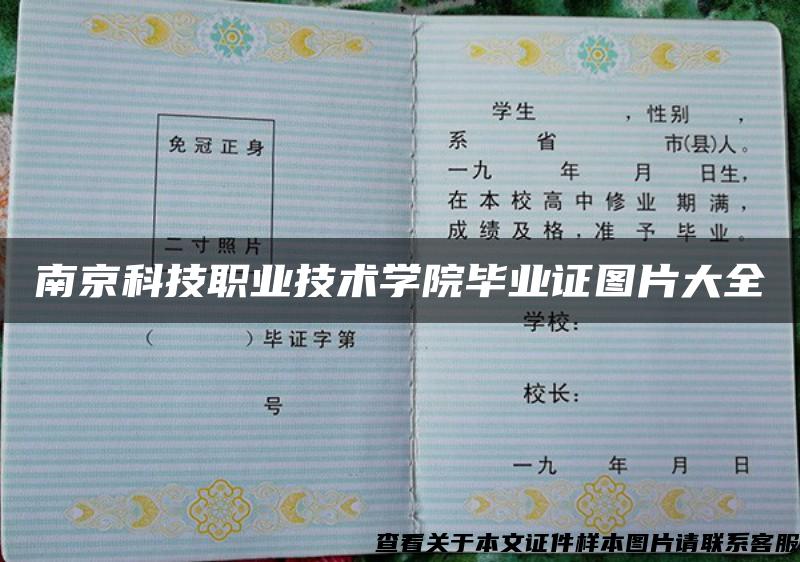 免冠正身
二寸照片
（ ）毕证字第
号
学生 ，性别 ，
系 省 市(县)人。
一九 年 月 日生，
在本校高中修业 期满，
成绩及格，准予毕业。
南京科技职业技术学院毕业证图片大全
学校：
校长：
一九 年 月 日
查看关于本文证件样本图片请联系客服